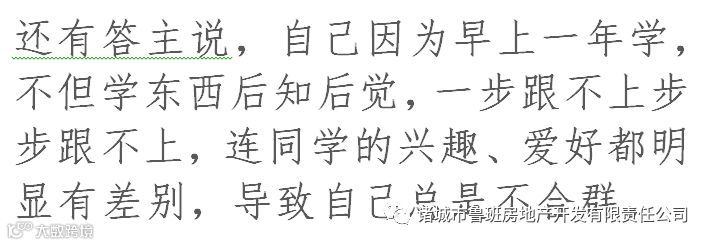 还有答主说，自己因为早上一年学，
不但学东西后知后觉，一步跟不上步
步跟不上，连同学的兴趣、爱好都明
显有差别，导致自己总是不合群
诸城市鲁班房地产开发有限责任公司
大数跨境